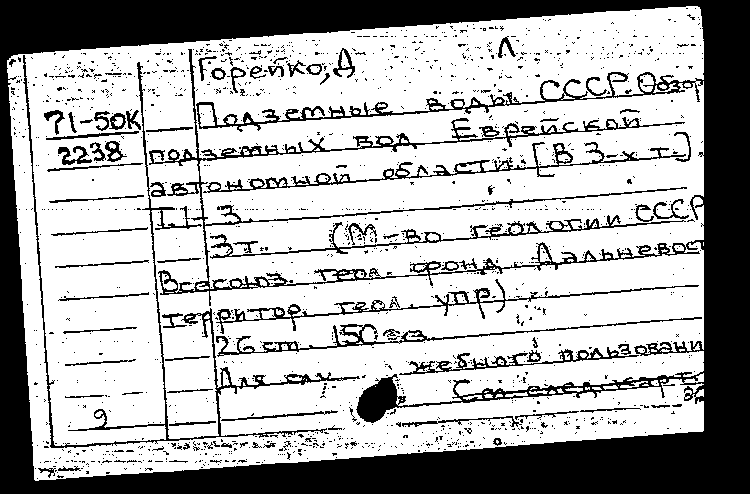 Горейко, Д Л
71-50К
2238
Подземные воды СССР. Обзор
подземных вод Еврейской
автономной области. [В 3-х т.].
Т.1-3.
3т. (М-во геологии СССР
Всесоюз. геол. фонд. Дальневост
территор. геол. упр.)
26 см. 150 экз.
Для служебного пользовани
См след. карт.
9